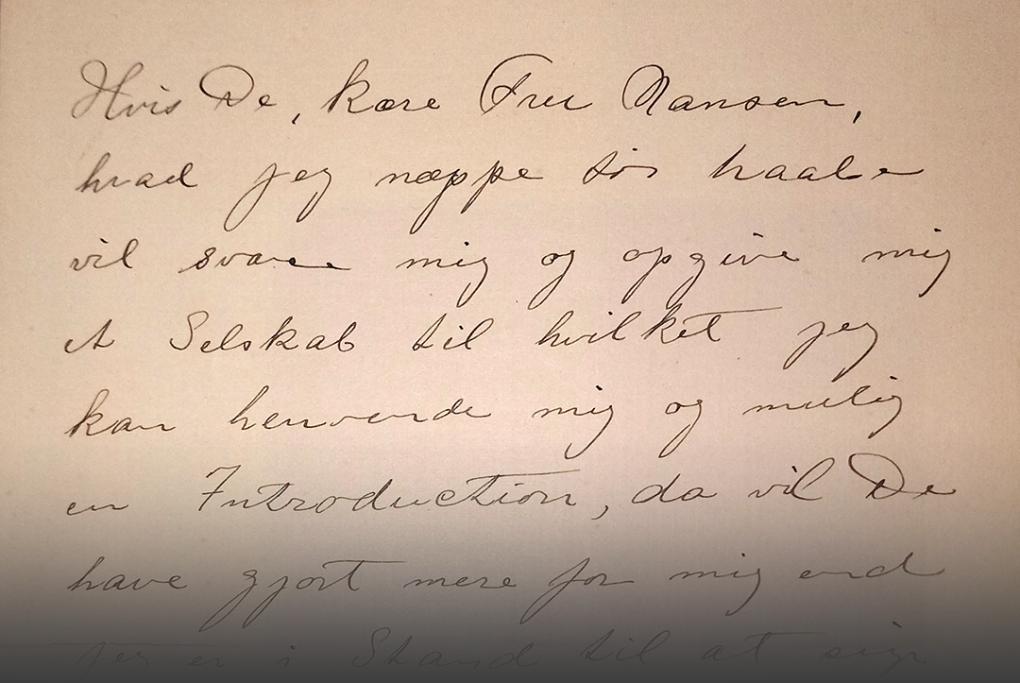 Hvis De, kære Fru Nansen,
hvad jeg næppe tör haabe
vil svare mig og opgive mig
et Selskab til hvilket jeg
kan henvende mig og mulig
en Introduction, da vil De
have gjort mere for mig end
jeg er i Stand til at sige